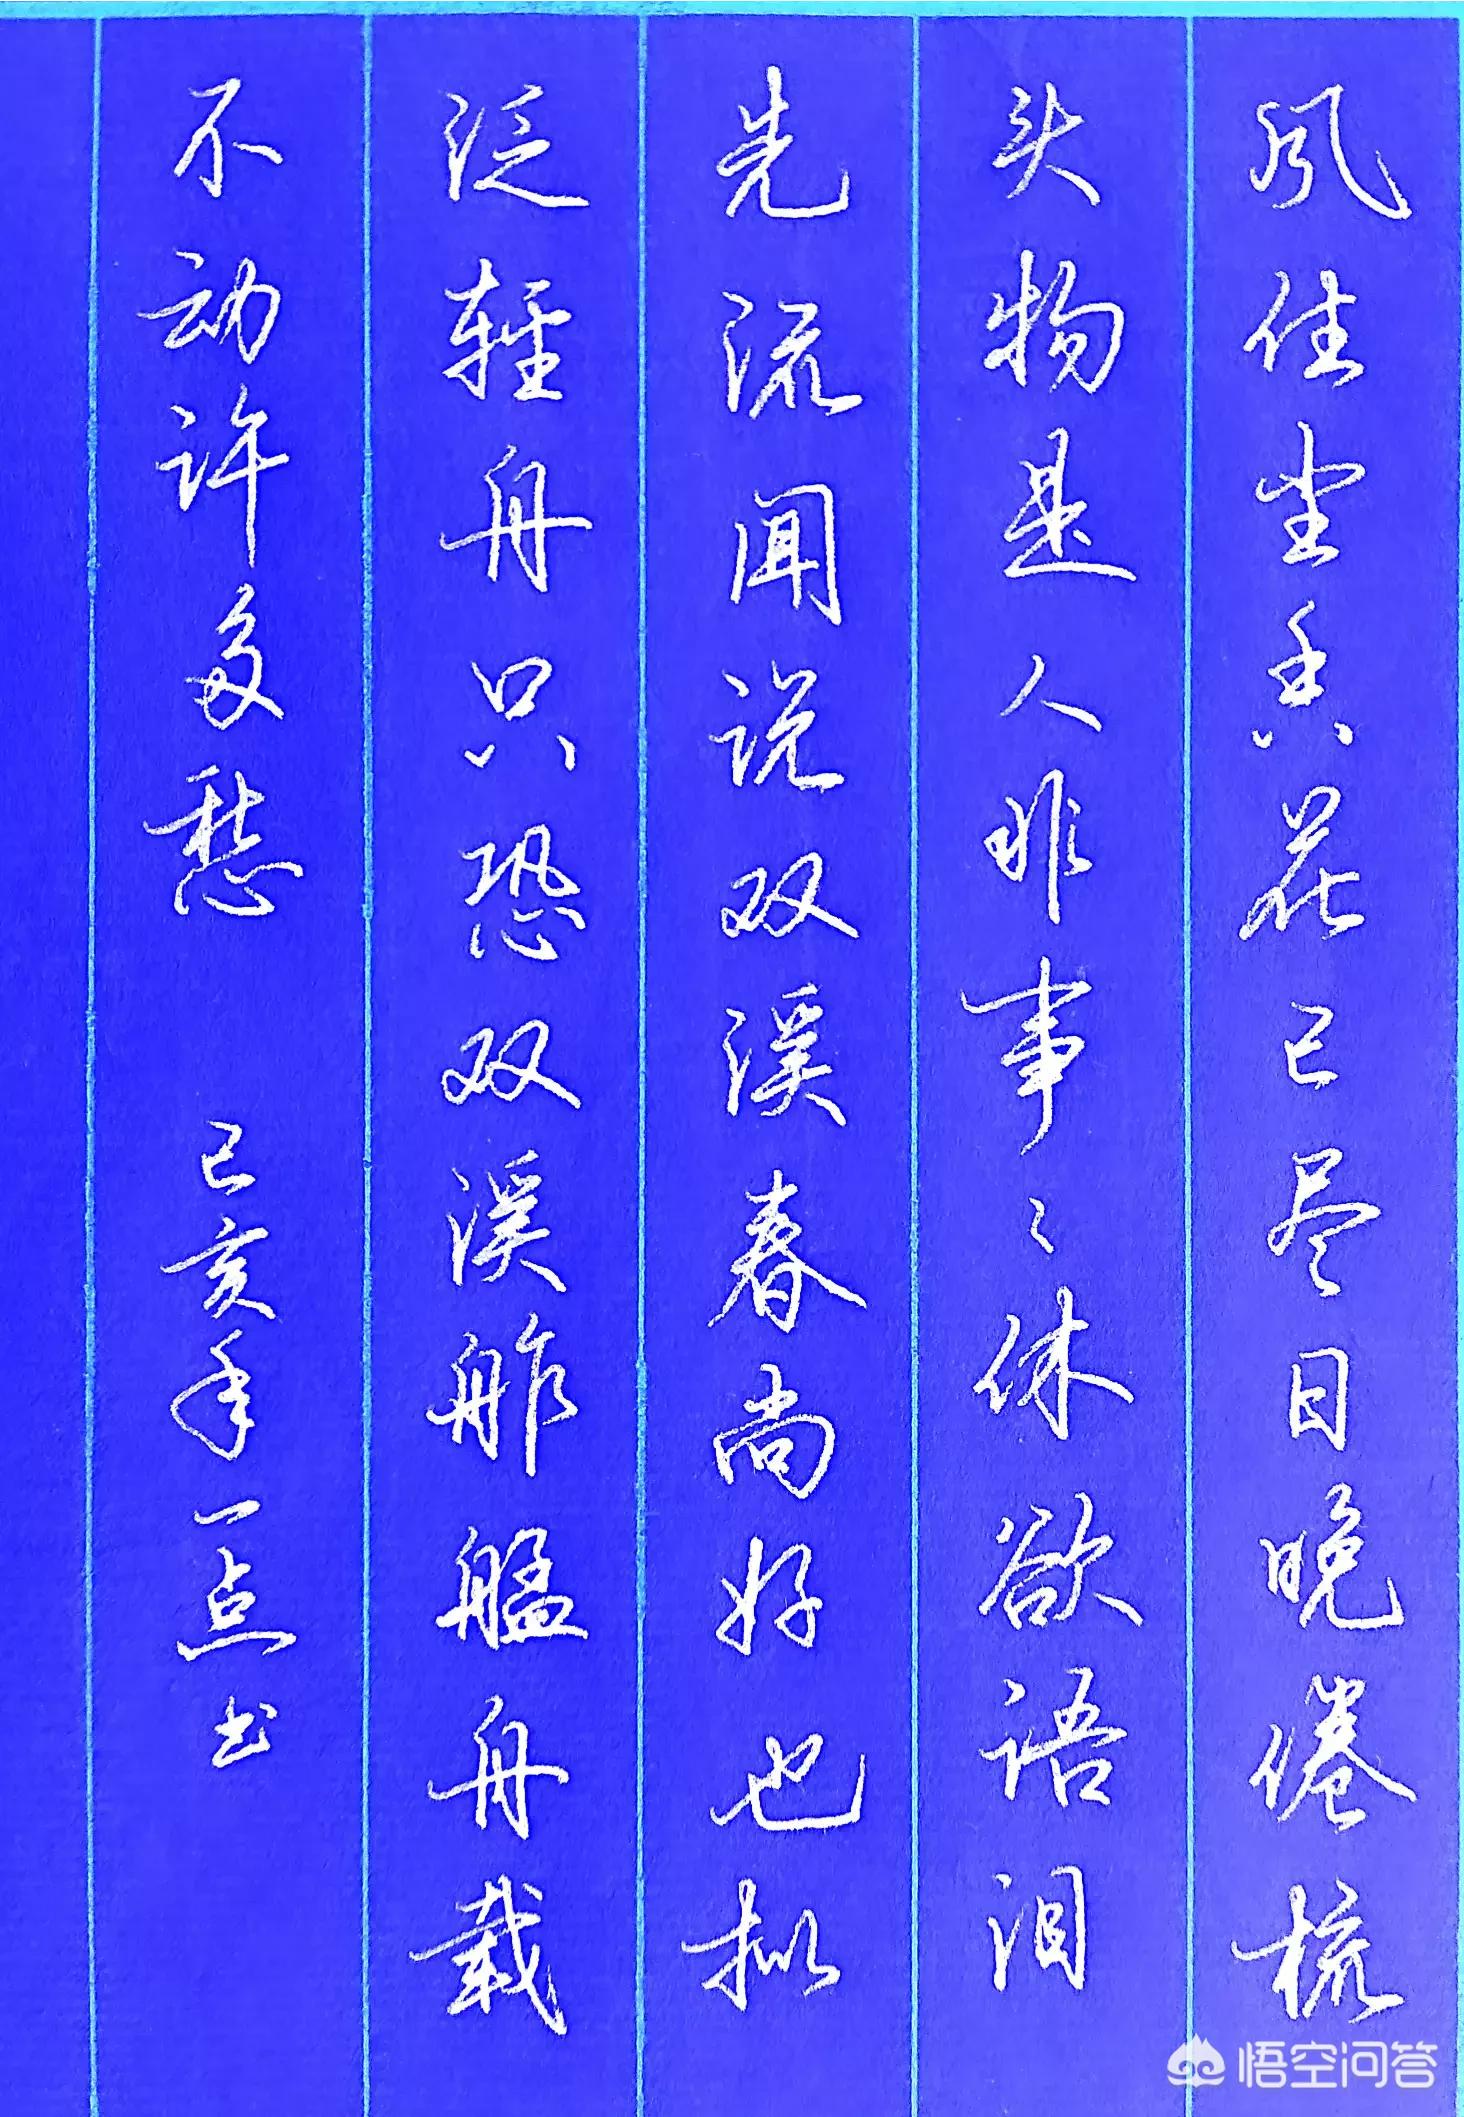 风住尘香花已尽日晚倦梳
头物是人非事〻休欲语泪
先流闻说双溪春尚好也拟
泛轻舟只恐双溪舴艋舟载
不动许多愁 己亥年一点书
悟空问答